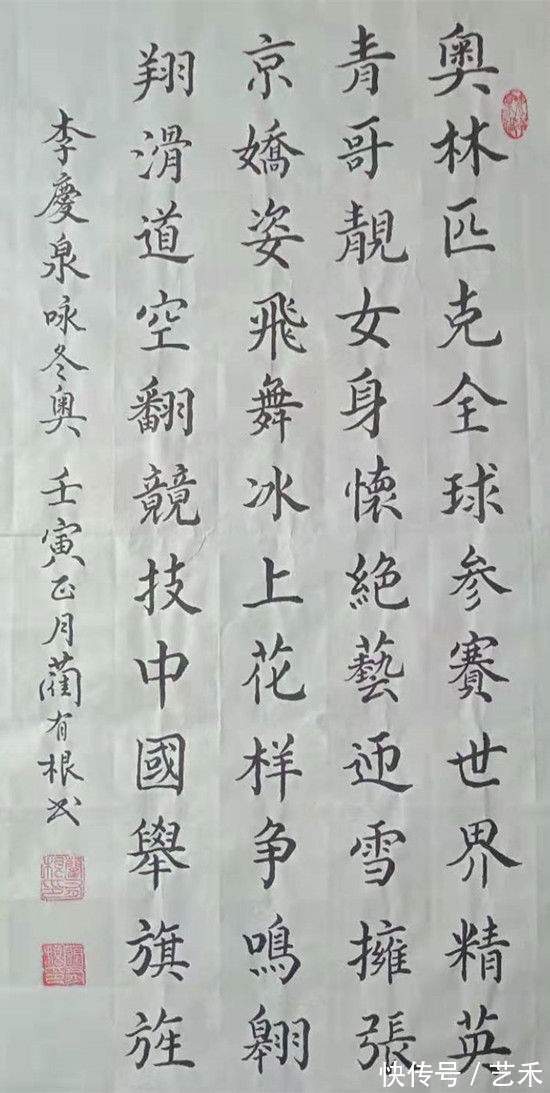 奧林匹克全球参賽世界精英
青哥靚女身懷絶藝迎雪擁張
京嬌姿飛舞冰上花样争鳴翱
翔滑道空翻競技中國舉旗旌
李慶泉咏冬奧 壬寅正月藺有根书
快传号 / 艺禾